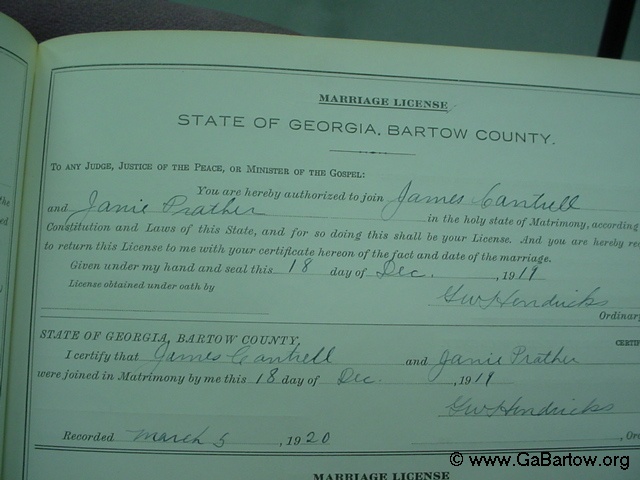 MARRIAGE LICENSE
STATE OF GEORGIA, BARTOW COUNTY.
TO ANY JUDGE, JUSTICE OF THE PEACE, OR MINISTER OF THE GOSPEL:
You are hereby authorized to join James Cantrell
and Janie Prather in the holy state of Matrimony, according
Constitution and Laws of this State, and for so doing this shall be your License. And you are hereby
to return this License to me with your certificate hereon of the fact and date of the marriage.
Given under my hand and seal this 18 day of Dec. , 1919
License obtained under oath by
GW Hendricks
Ordinary
STATE OF GEORGIA, BARTOW COUNTY,
I certify that James Cantrell and Janie Prather
were joined in Matrimony by me this 18 day of Dec. , 1919
GW Hendricks
Recorded March 5 , 1920
MARRIAGE LICENSE
© www.GaBartow.org